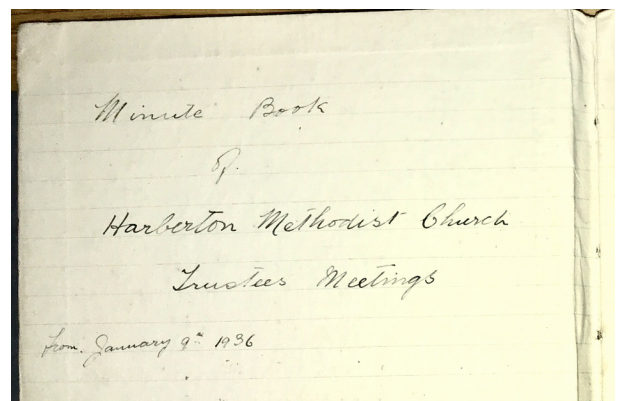 Minute Book
of
Harberton Methodist Church
Trustees Meetings
from January 9th 1936